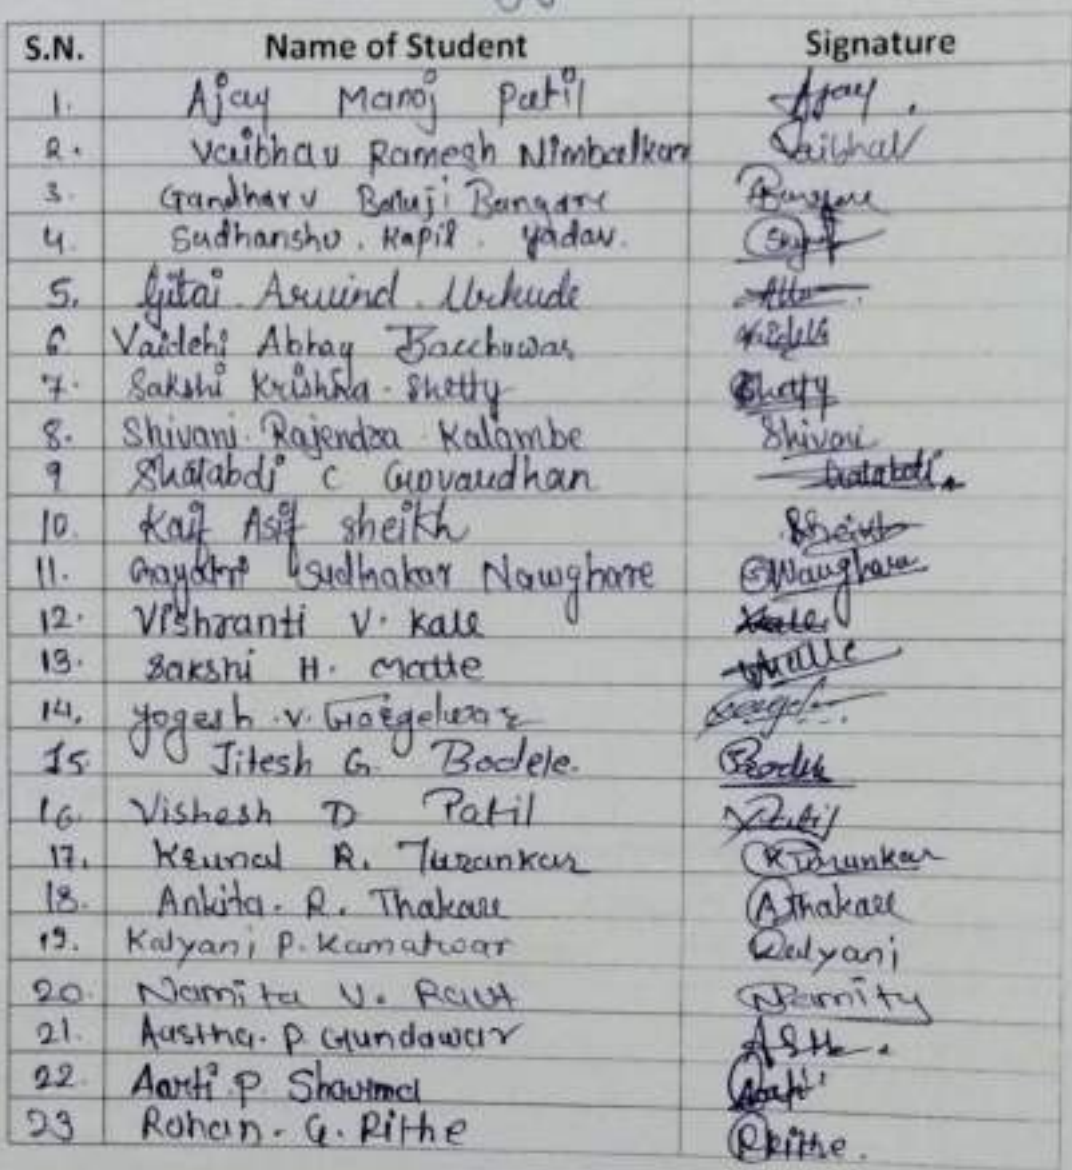 S.N. Name of Student Signature
1. Ajay Manoj Patil Ajay.
2. Vaibhav Ramesh Nimbalkar Vaibhav
3. Gandharv Baluji Bangare Bangare
4. Sudhanshu. Kapil. Yadav.
5. Gitai Arvind. Urkude
6 Vaidehi Abhay Bacchuwar Vaidehi
7. Sakshi Krishna. Shetty Shetty
8. Shivani Rajendra Kalambe Shivani
9 Shatabdi C Govardhan Shatabdi.
10. Kaif Asif Sheikh Sheikh
11. Gayatri Sudhakar Nawghare
12. Vishranti V. Kale Kale
13. Sakshi H. Matte Matte
14. Yogesh .V. Gorgelwar
15. Jitesh G. Bodele.
16. Vishesh D Patil Patil
17. Krunal R. Turankar
18. Ankita. R. Thakare AThakare
19. Kalyani P. Kamatwar Kalyani
20. Namita V. Raut
21. Aastha. P Gundawar
22. Aarti P Sharma Aarti
23 Rohan. G. Rithe RRithe.